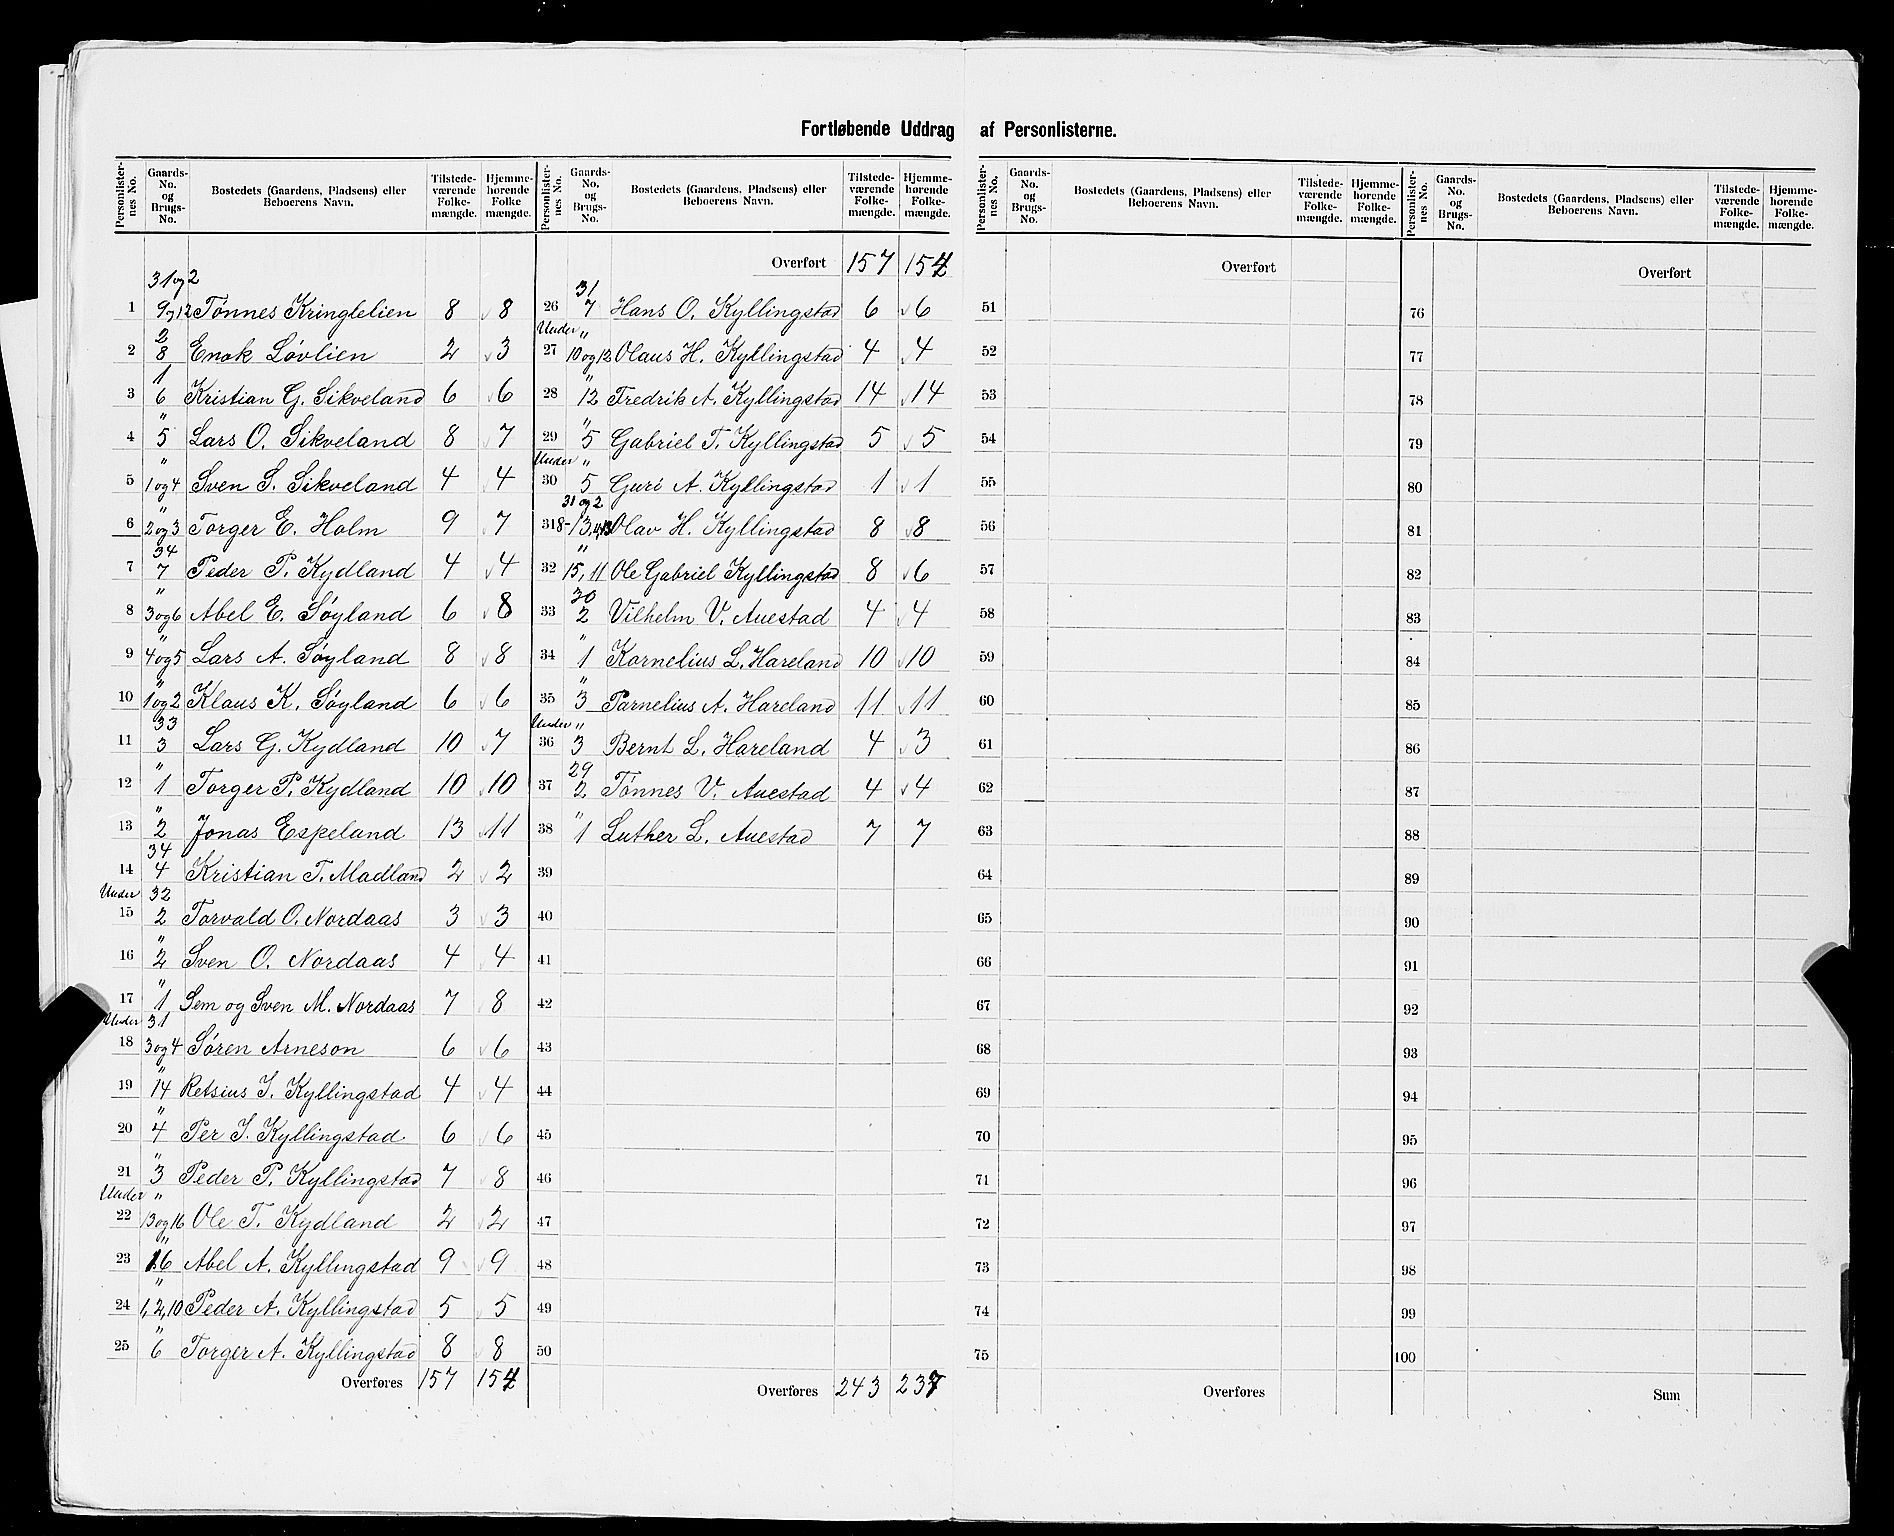 Fortløbende Uddrag af Personlisterne.
Personlister-nes No. | Gaards-No. og Brugs-No. | Bostedets (Gaardens, Pladsens) eller Beboerens Navn. | Tilstede-værende Folke-mængde. | Hjemme-hørende Folke-mængde.
31 og 2
1 9 og 12 Tønnes Kringlelien 8 8
2
2 8 Enok Løvlien 2 3
1
3 6 Kristian G. Sikveland 6 6
"
4 5 Lars O. Sikveland 8 7
"
5 1 og 4 Sven S. Sikveland 4 4
"
6 2 og 3 Torger E. Holm 9 7
34
7 7 Peder P. Kydland 4 4
"
8 3 og 6 Abel E. Søyland 6 8
"
9 4 og 5 Lars A. Søyland 8 8
"
10 1 og 2 Klaus K. Søyland 6 6
33
11 3 Lars G. Kydland 10 7
"
12 1 Torger P. Kydland 10 10
"
13 2 Jonas Espeland 13 11
34
14 4 Kristian T. Madland 2 2
Under 32
15 2 Torvald O. Nordaas 3 3
"
16 2 Sven O. Nordaas 4 4
"
17 1 Sem og Sven M. Nordaas 7 8
Under 31
18 3 og 4 Søren Arneson 6 6
"
19 14 Retsius I. Kyllingstad 4 4
"
20 4 Per I. Kyllingstad 6 6
"
21 3 Peder P. Kyllingstad 7 8
Under "
22 13 og 16 Ole T. Kydland 2 2
"
23 16 Abel A. Kyllingstad 9 9
"
24 1, 2, 10 Peder A. Kyllingstad 5 5
"
25 6 Torger A. Kyllingstad 8 8
Overføres 157 154
Personlister-nes No. | Gaards-No. og Brugs-No. | Bostedets (Gaardens, Pladsens) eller Beboerens Navn. | Tilstede-værende Folke-mængde. | Hjemme-hørende Folke-mængde.
Overført 157 154
31
26 7 Hans O. Kyllingstad 6 6
Under "
27 10 og 12 Olaus H. Kyllingstad 4 4
"
28 12 Fredrik A. Kyllingstad 14 14
"
29 5 Gabriel T. Kyllingstad 5 5
Under "
30 5 Guri A. Kyllingstad 1 1
31 og 2
31 8-13, Olav H. Kyllingstad 8 8
"
32 15, 11 Ole Gabriel Kyllingstad 8 6
30
33 2 Vilhelm V. Auestad 4 4
"
34 1 Kornelius L. Hareland 10 10
"
35 3 Parnelius A. Hareland 11 11
Under "
36 3 Bernt L. Hareland 4 3
29
37 2 Tønnes V. Auestad 4 4
"
38 1 Luther L. Auestad 7 7
39
40
41
42
43
44
45
46
47
48
49
50
Overføres 243 237
Personlister-nes No. | Gaards-No. og Brugs-No. | Bostedets (Gaardens, Pladsens) eller Beboerens Navn. | Tilstede-værende Folke-mængde. | Hjemme-hørende Folke-mængde.
Overført
51
52
53
54
55
56
57
58
59
60
61
62
63
64
65
66
67
68
69
70
71
72
73
74
75
Overføres
Personlister-nes No. | Gaards-No. og Brugs-No. | Bostedets (Gaardens, Pladsens) eller Beboerens Navn. | Tilstede-værende Folke-mængde. | Hjemme-hørende Folke-mængde.
Overført
76
77
78
79
80
81
82
83
84
85
86
87
88
89
90
91
92
93
94
95
96
97
98
99
100
Sum